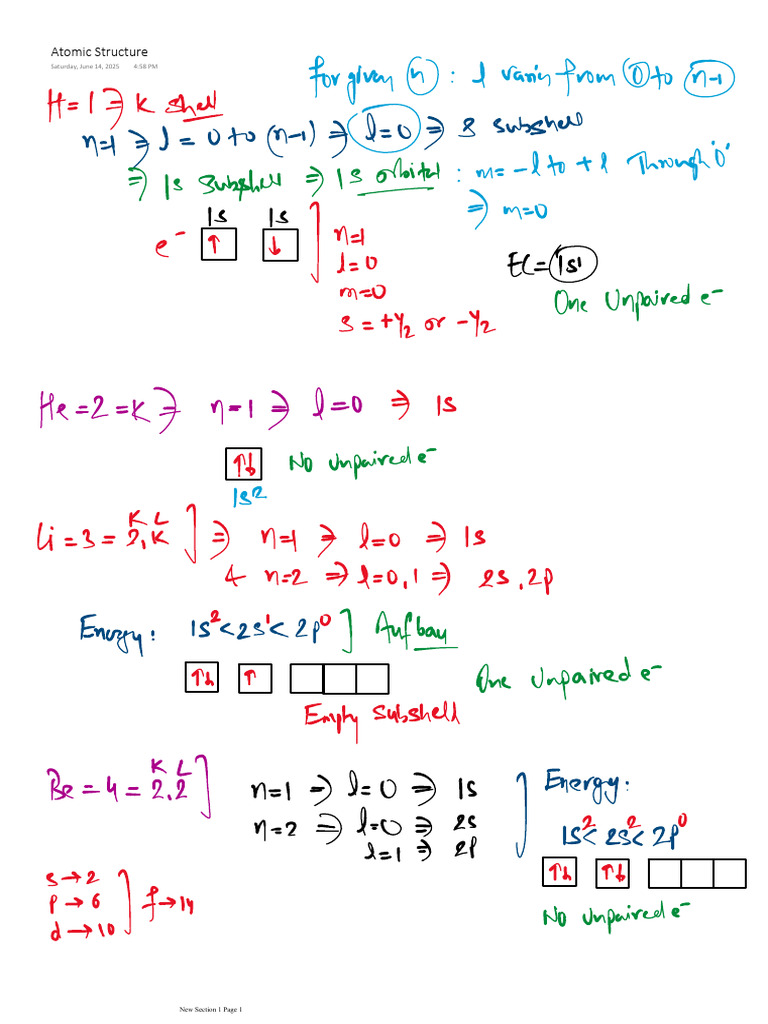 Atomic Structure
Saturday, June 14, 2025 4:58 PM
for given n : l varies from 0 to n-1
H = 1 ⇒ K shell
n=1 ⇒ l = 0 to (n-1) ⇒ l=0 ⇒ s subshell
⇒ 1s subshell ⇒ 1s orbital : m = -l to +l through '0'
⇒ m=0
1s 1s
e⁻ ↑ ↓
n=1
l=0
m=0
s = +1/2 or -1/2
EC = 1s¹
One Unpaired e⁻
He = 2 = K ⇒ n=1 ⇒ l=0 ⇒ 1s
↑↓ No Unpaired e⁻
1s²
K L
Li = 3 = 2, K ] ⇒ n=1 ⇒ l=0 ⇒ 1s
& n=2 ⇒ l=0,1 ⇒ 2s, 2p
Energy: 1s² < 2s¹ < 2p⁰ ] Aufbau
↑↓ ↑ One Unpaired e⁻
Empty Subshell
K L
Be = 4 = 2.2 ]
n=1 ⇒ l=0 ⇒ 1s
n=2 ⇒ l=0 ⇒ 2s
l=1 ⇒ 2p
Energy:
1s² < 2s² < 2p⁰
↑↓ ↑↓
No Unpaired e⁻
s → 2
p → 6
d → 10
f → 14
New Section 1 Page 1